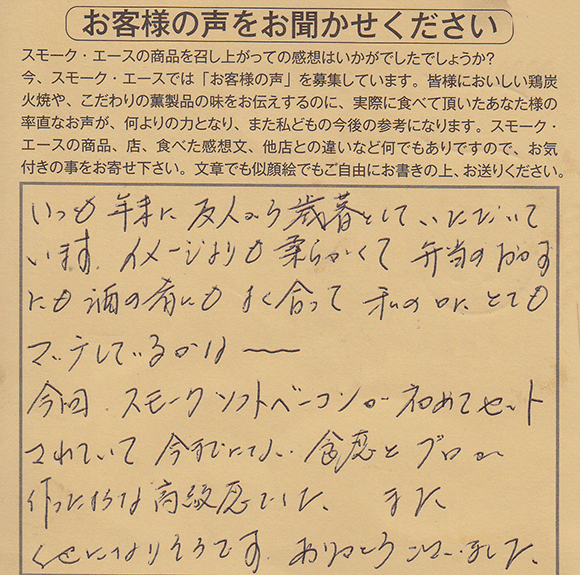 お客様の声をお聞かせください
スモーク・エースの商品を召し上がっての感想はいかがでしたでしょうか?
今、スモーク・エースでは「お客様の声」を募集しています。皆様においしい鶏炭
火焼や、こだわりの薫製品の味をお伝えするのに、実際に食べて頂いたあなた様の
率直なお声が、何よりの力となり、また私どもの今後の参考になります。スモーク・
エースの商品、店、食べた感想文、他店との違いなど何でもありですので、お気
付きの事をお寄せ下さい。文章でも似顔絵でもご自由にお書きの上、お送りください。
いつも年末に友人から歳暮としていただいて
います。イメージよりも柔らかくて弁当のおかず
にも酒の肴にもよく合って私の口にとても
マッチしているかな〜
今回、スモークソフトベーコンが初めてセット
されていて今までにない食感とプロが
作ったような高級感でした。また
くせになりそうです。ありがとうございました。